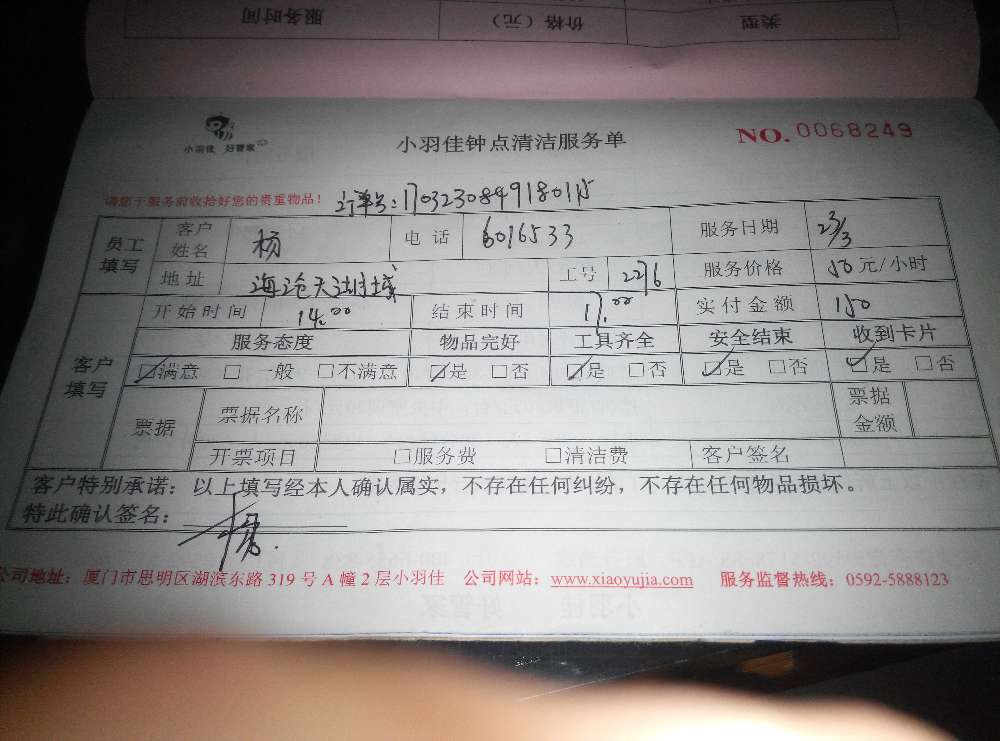 类型 价格（元） 服务时间
小羽佳 好管家
小羽佳钟点清洁服务单
NO. 0068249
请您于服务前收拾好您的贵重物品！ 订单号：
员工填写 客户姓名 杨 电话 6016533 服务日期 23/3
地址 海沧天湖城 工号 2276 服务价格 50元/小时
开始时间 14:00 结束时间 17:00 实付金额 150
客户填写 服务态度 物品完好 工具齐全 安全结束 收到卡片
☑满意 □一般 □不满意 ☑是 □否 ☑是 □否 ☑是 □否 ☑是 □否
票据 票据名称 票据金额
开票项目 □服务费 □清洁费 客户签名
客户特别承诺：以上填写经本人确认属实，不存在任何纠纷，不存在任何物品损坏。
特此确认签名：
公司地址：厦门市思明区湖滨东路 319 号 A 幢 2 层小羽佳 公司网站：www.xiaoyujia.com 服务监督热线：0592-5888123